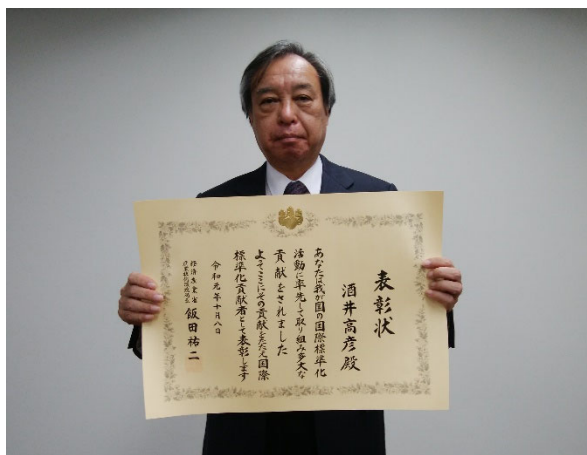 表彰状
酒井高彦殿
あなたは我が国の国際標準化
活動に率先して取り組み多大な
貢献をされました
よってここにその貢献をたたえ国際
標準化貢献者として表彰します
令和元年十月八日
経済産業省
産業技術環境局長
飯田祐二